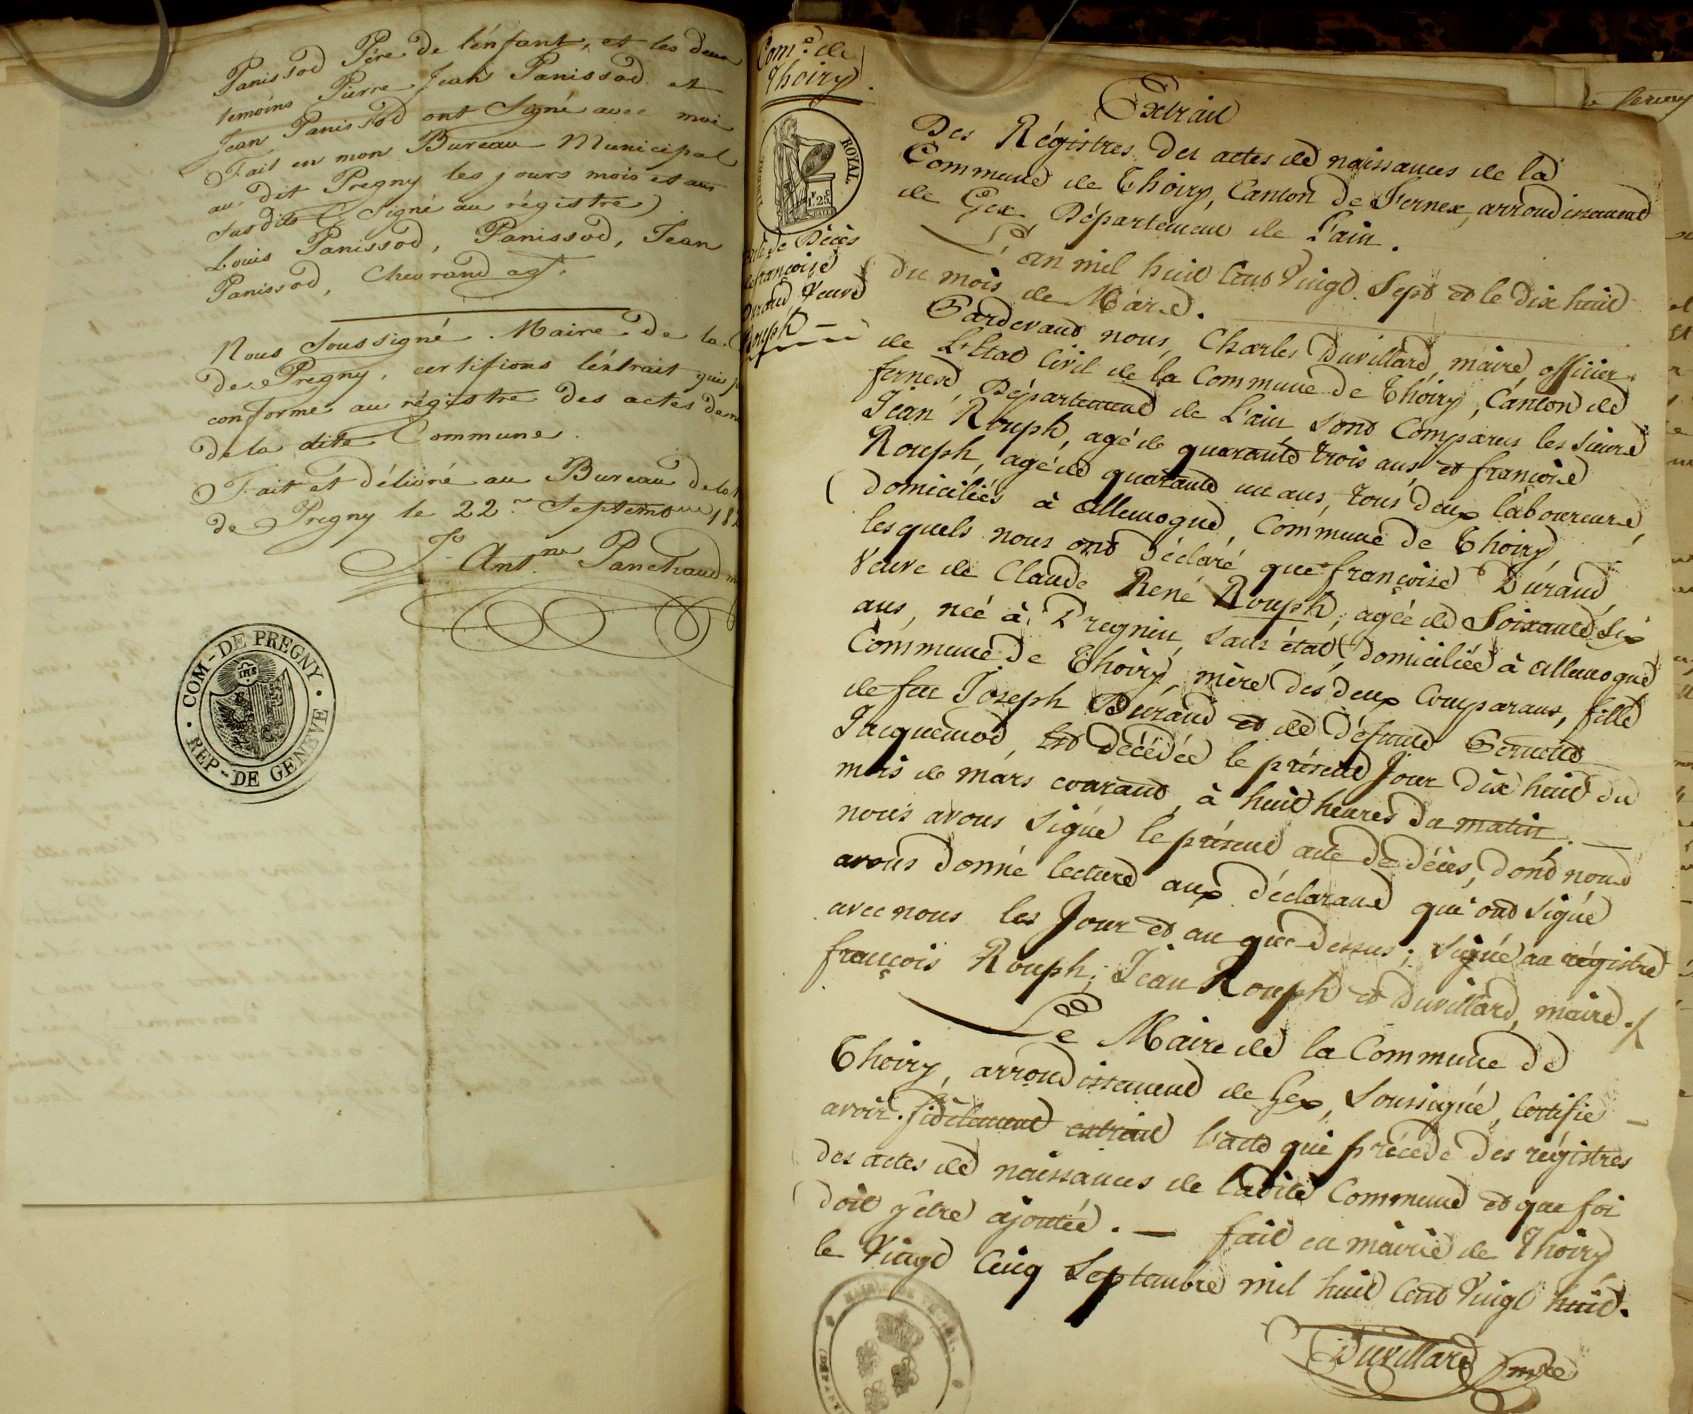 Panissod Père de l'enfant, et les deux
temoins Pierre Jean Panissod et
Jean Panissod ont Signé avec moi
Fait en mon Bureau Municipal
au dit Pregny les jours mois et an
susdits (Signé au régistre)
Louis Panissod, Panissod, Jean
Panissod, Chevrand
Nous Soussigné Maire de la
de Pregny, certifions l'éxtrait
conforme au régistre des actes
de la dite Commune.
Fait et délivré au Bureau de la
de Pregny le 22 Septembre
Ant.ne Panchaud
COM-DE PREGNY
REP-DE GENEVE
Com.e de
Thoiry.
ROYAL
1F.25
de Décès
françoise
Durand Veuve
Rouph
Extrait
Des Régistres des actes de naissances de la
Commune de Thoiry, Canton de Fernex, arrondissement
de Gex, Département de L'ain.
L'an mil huit Cent Vingt Sept et le dix huit
du mois de Mars.
Pardevant nous, Charles Duvillard, maire officier
de L'Etat Civil de la Commune de Thoiry, Canton de
fernex, Département de L'ain, sont Comparus les sieurs
Jean Rouph, agé de quarante trois ans, et françois
Rouph, agé de quarante un ans, tous deux laboureurs,
domiciliés à allemogne, Commune de Thoiry,
lesquels nous ont déclaré que françoise Durand,
Veuve de Claude René Rouph, agée de Soixante Six
ans, née à Pregnin, sans état, domiciliée à allemogne
Commune de Thoiry, mère des deux Comparans, fille
de feu Joseph Durand et de défunte Pernette
Jacquemod, est décédée le présent Jour dix huit du
mois de mars courant, à huit heures du matin.
nous avons signé le présent acte de décès, dont nous
avons donné lecture aux déclarans qui ont signé
avec nous les Jour et an que dessus; signé au régistre
françois Rouph; Jean Rouph et Duvillard, maire.
Le Maire de la Commune de
Thoiry, arrondissement de Gex, Soussigné, Certifie
avoir fidèlement extrait l'acte qui précède des régistres
des actes de naissances de ladite Commune et que foi
doit y être ajoutée. — fait en mairie de Thoiry
le Vingt Cinq Septembre mil huit Cent Vingt huit.
Duvillard mre